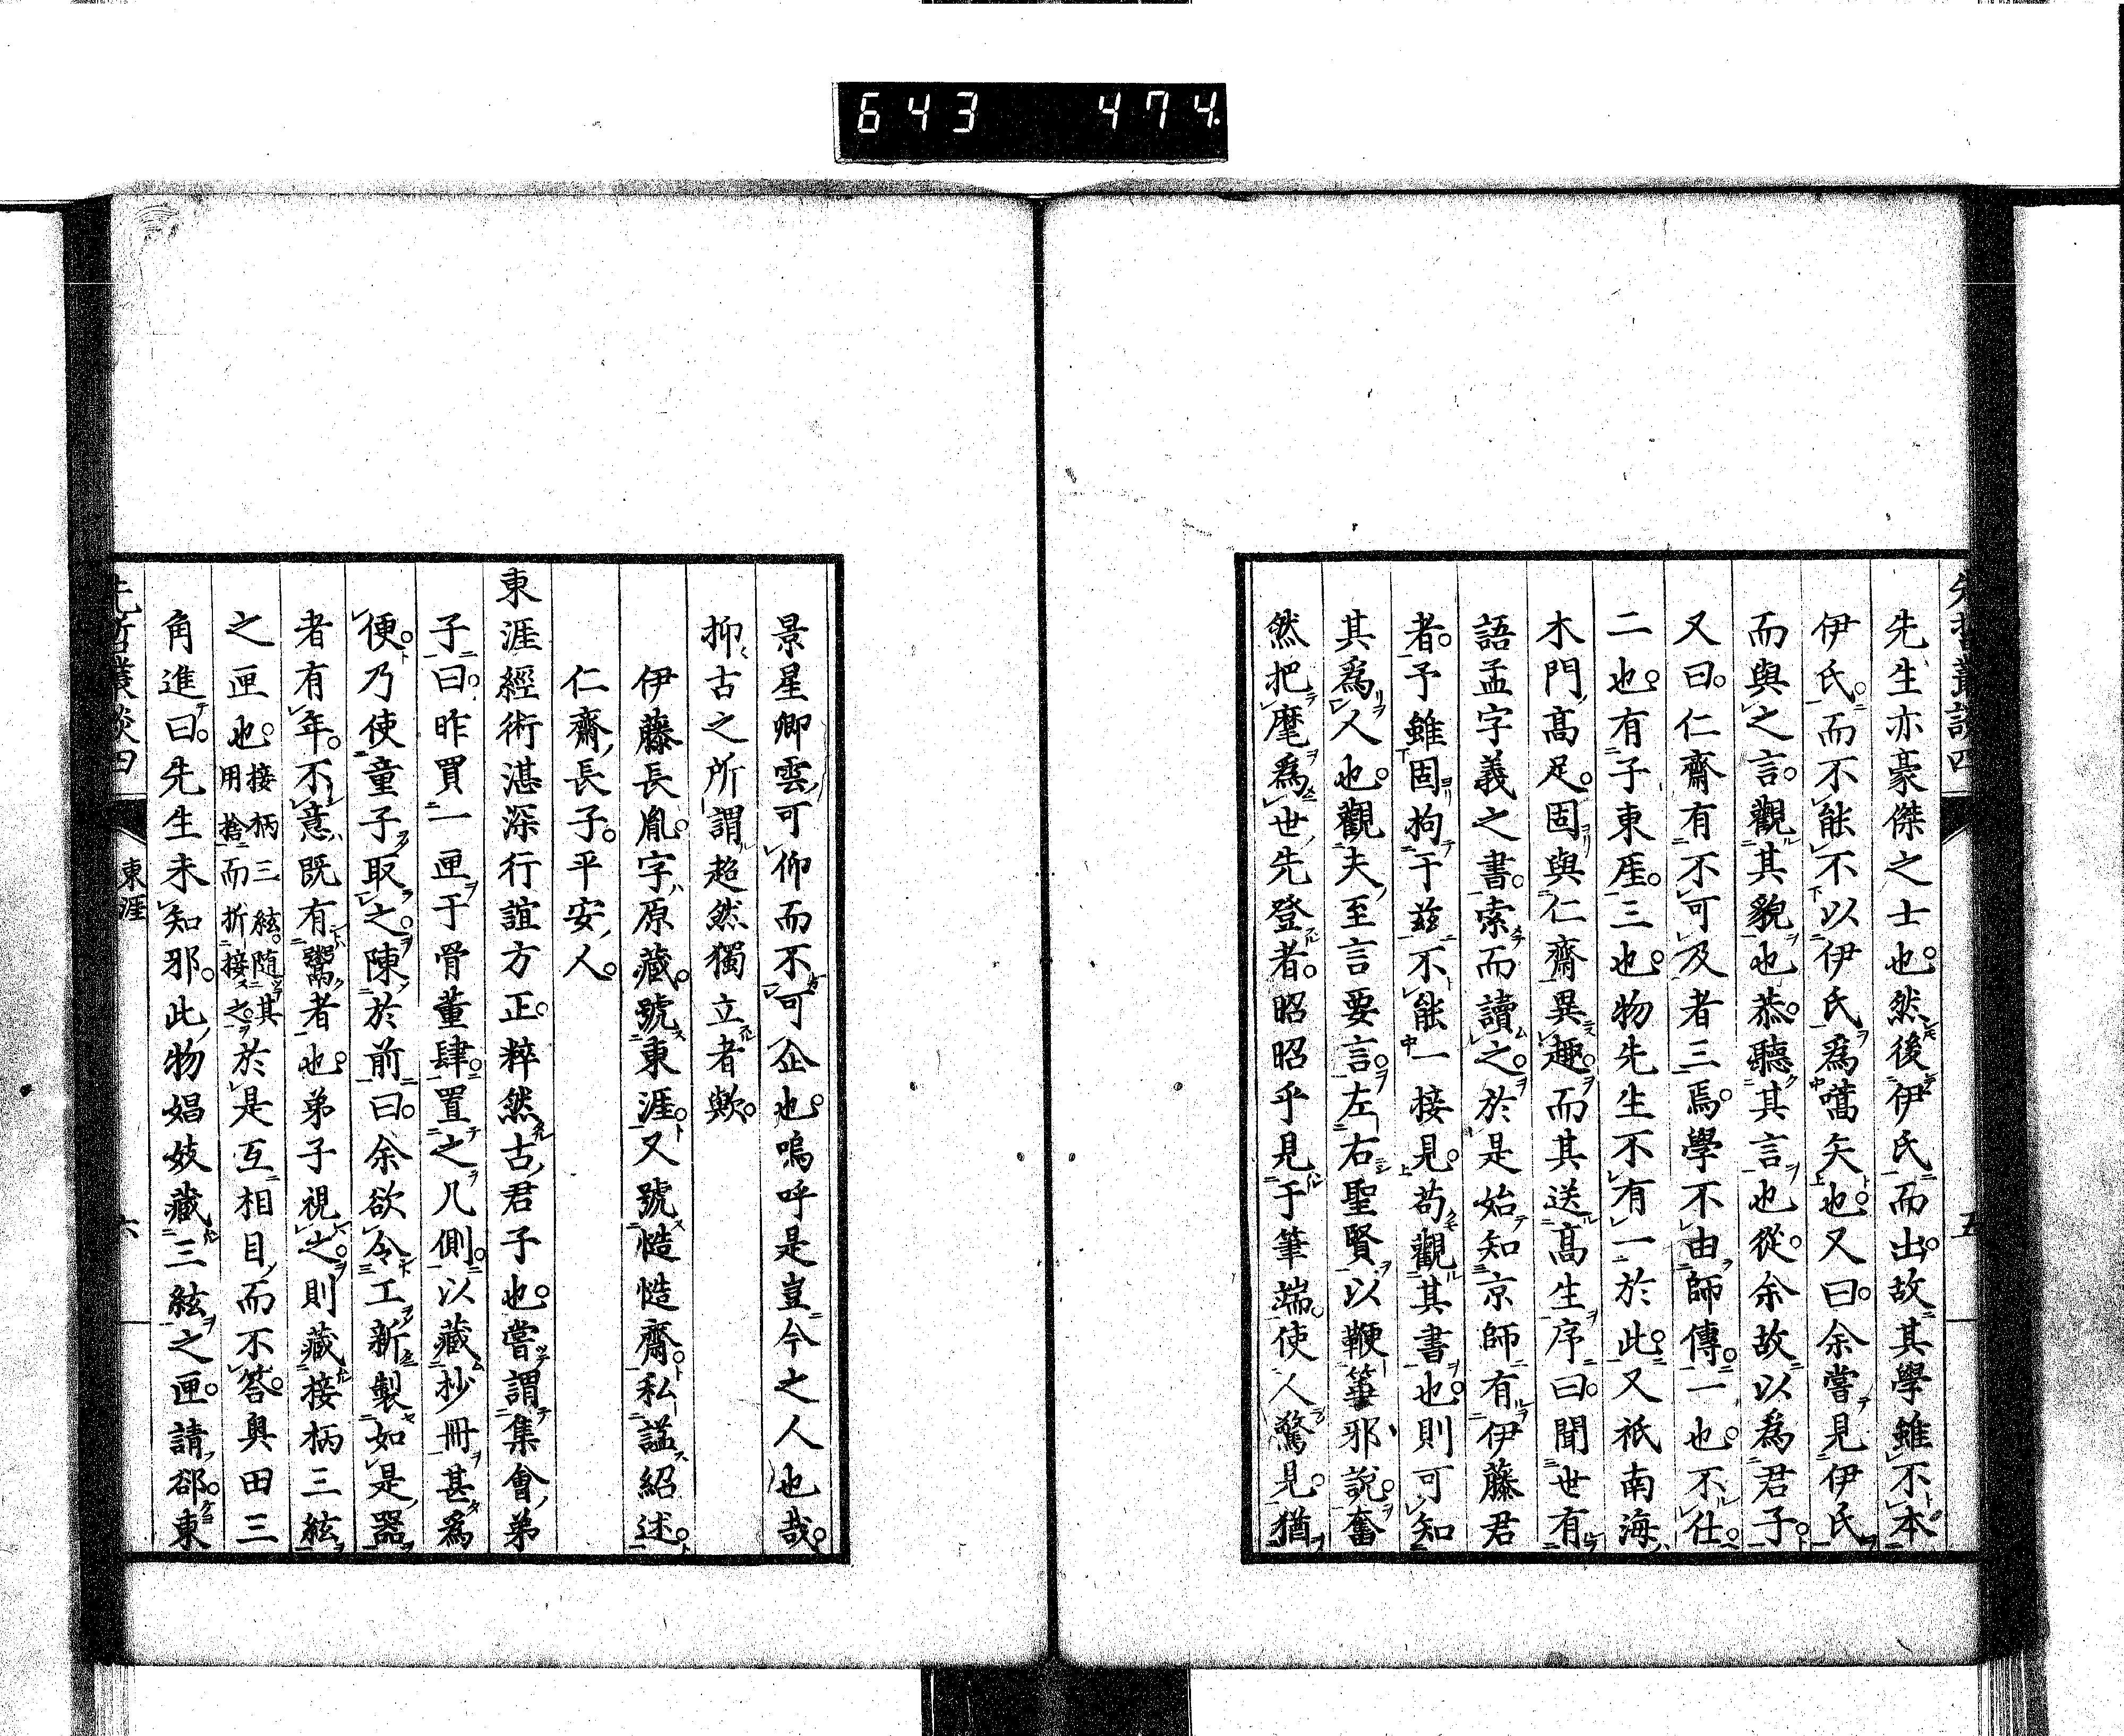 643 474.
先哲叢談四
五
先生亦豪傑之士也。然後伊氏而出。故其學雖不本
伊氏。而不能不以伊氏爲嚆矢也。又曰。余嘗見伊氏
而與之言。觀其貌也恭。聽其言也從。余故以爲君子。
又曰。仁齋有不可及者三焉。學不由師傳。一也。不仕。
二也。有子東厓。三也。物先生不有一於此。又祇南海
木門高足。固與仁齋異趣。而其送高生序曰。聞世有
語孟字義之書。索而讀之。於是始知京師有伊藤君
者。予雖固拘于玆不能一接見。苟觀其書也。則可知
其爲人也。觀夫至言要言。左右聖賢。以鞭箠邪說。奮
然把麾爲世先登者。昭昭乎見于筆端。使人驚見。猶
景星卿雲可仰而不可企也。嗚呼是豈今之人也哉。
抑古之所謂超然獨立者歟。
伊藤長胤。字原藏。號東涯。又號慥慥齋。私諡紹述。
仁齋長子。平安人。
東涯經術湛深行誼方正。粹然古君子也。嘗謂集會弟
子曰。昨買一匣于骨董肆。置之几側。以藏抄冊。甚爲
便。乃使童子取之。陳於前曰。余欲令工新製如是器
者有年。不意既有鬻者也。弟子視之。則藏接柄三絃
之匣也。接柄三絃。随其用捨而折接之。於是互相目而不答。奥田三
角進曰。先生未知邪。此物娼妓藏三絃之匣。請郤。東
先哲叢談四
東涯
六